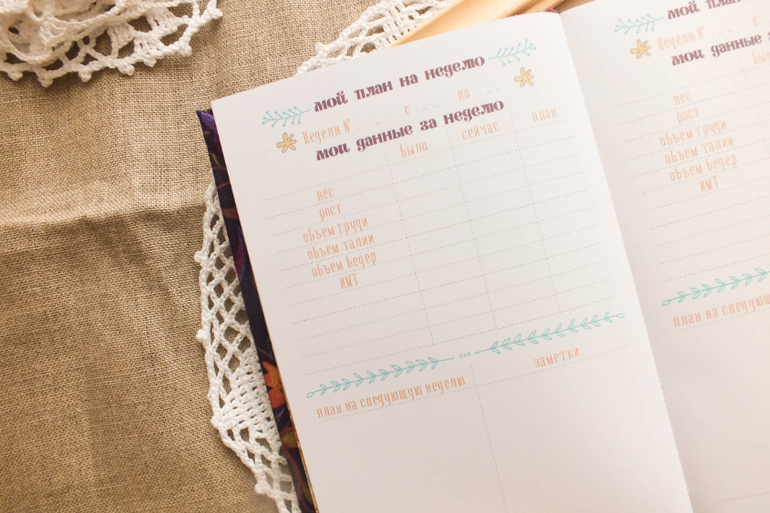 мой план на неделю
Неделя № с по
мои данные за неделю
было сейчас план
вес
рост
объем груди
объем талии
объем бедер
ИМТ
план на следующую неделю
заметки
мой план
Неделя № с
мои данные з
было
вес
рост
объем груди
объем талии
объем бедер
ИМТ
план на следующу